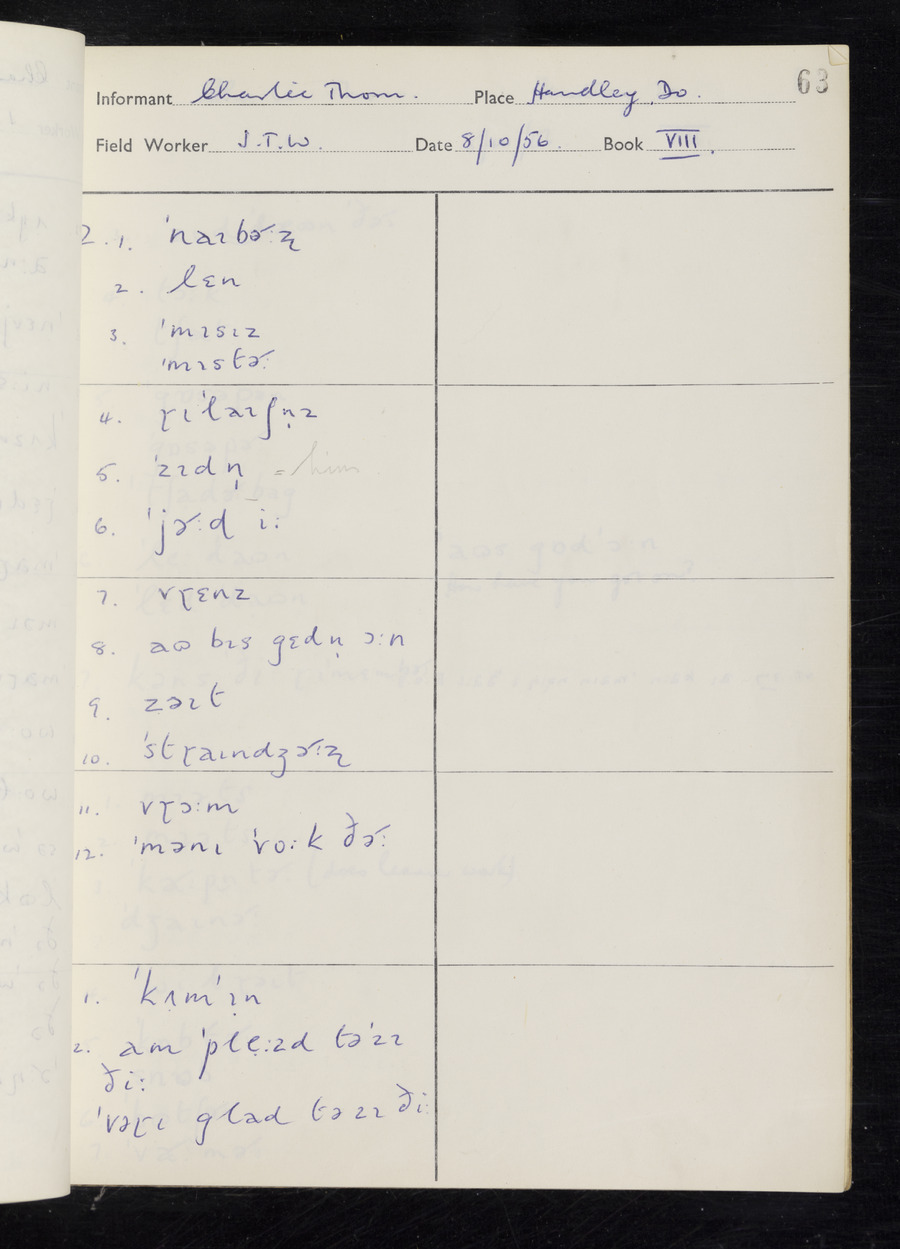 63
Informant Charlie Thom. Place Handley, Do.
Field Worker J.T.W. Date 8/10/56. Book VIII.
2. 1. ˈnaɪbɚːɻ
2. lɛn
3. ˈmɪsɪz
ˈmɪstɚː
4. ɽɪˈlaɪʃn̩z
5. ˈzɪdn̩ = him
6. ˈjɚːd iː
7. vɽɛnz
8. aʊ bɪs gɛdn̩ ɔːn
9. zəɪt
10. ˈstɽaɪndʒɚːɻ
11. vɽɔːm
12. ˈmənɪ ˈvoːk ðɚː
1. ˈkʌmˈɪn
2. am ˈple̝ːzd təˈzɪ
ðiː
ˈvəɽɪ glad tə zɪ ðiː